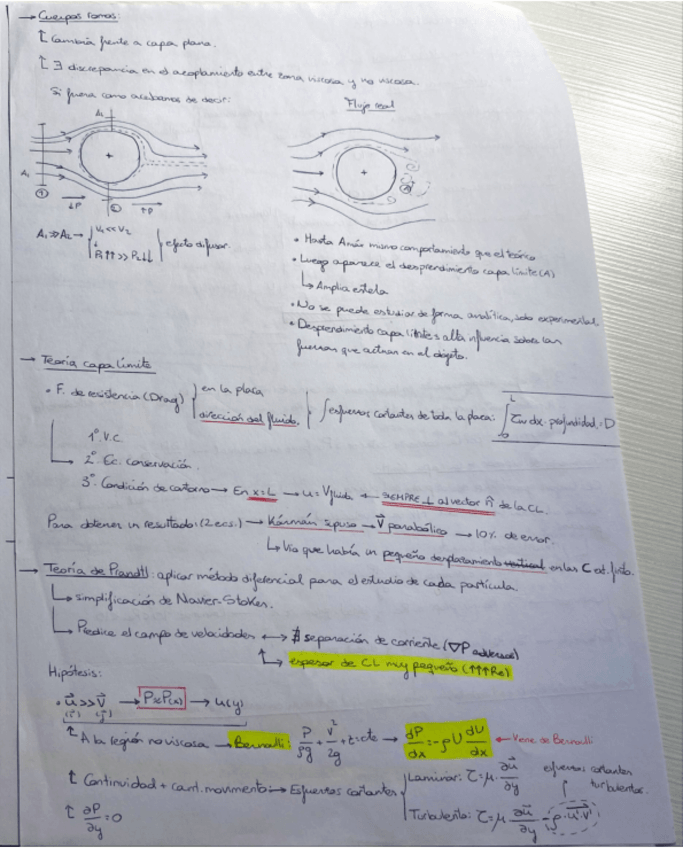 → Cuerpos romos:
↳ Cambia frente a capa plana.
↳ ∃ discrepancia en el acoplamiento entre zona viscosa y no viscosa.
Si fuera como acabamos de decir:
Flujo real
A₂
A₁
① ↓P ② ↑P
A₁ >> A₂ → V₁ << V₂
P₁↑↑ >> P₂↓↓
efecto difusor.
• Hasta Amáx mismo comportamiento que el teórico
• Luego aparece el desprendimiento capa límite (A)
↳ Amplia estela
• No se puede estudiar de forma analítica, solo experimental.
• Desprendimiento capa límite: alta influencia sobre las
fuerzas que actúan en el objeto.
→ Teoría capa límite
• F. de resistencia (Drag) en la placa
dirección del fluido.
∫ esfuerzos cortantes de toda la placa: ∫₀ᴸ τw dx · profundidad = D
1º V.C.
2º Ec. conservación.
3º Condición de contorno → En x=L → u = Vfluido + SIEMPRE ⊥ al vector n̂ de la CL.
Para obtener un resultado: (2 ecs.) → Kármán supuso → V⃗ parabólico → 10% de error.
↳ Vio que había un pequeño desplazamiento vertical en las
→ Teoría de Prandtl: aplicar método diferencial para el estudio de cada partícula.
↳ simplificación de Navier-Stokes.
↳ Predice el campo de velocidades ↔ ∄ separación de corriente (∇P adverso)
↳ espesor de CL muy pequeño (↑↑↑Re)
Hipótesis:
• u⃗ >> v⃗ → P≈P(x) → u(y)
(î) (ĵ)
↑ A la región no viscosa → Bernoulli: P/ρg + V²/2g + z = cte → dP/dx = -ρ U dU/dx ← Viene de Bernoulli
↑ Continuidad + cant. movimiento → Esfuerzos cortantes
Laminar: τ = μ · ∂u⃗/∂y
esfuerzos cortantes
turbulentos.
Turbulento: τ = μ ∂u⃗/∂y - ρ · u'·v'
↑ ∂P/∂y = 0